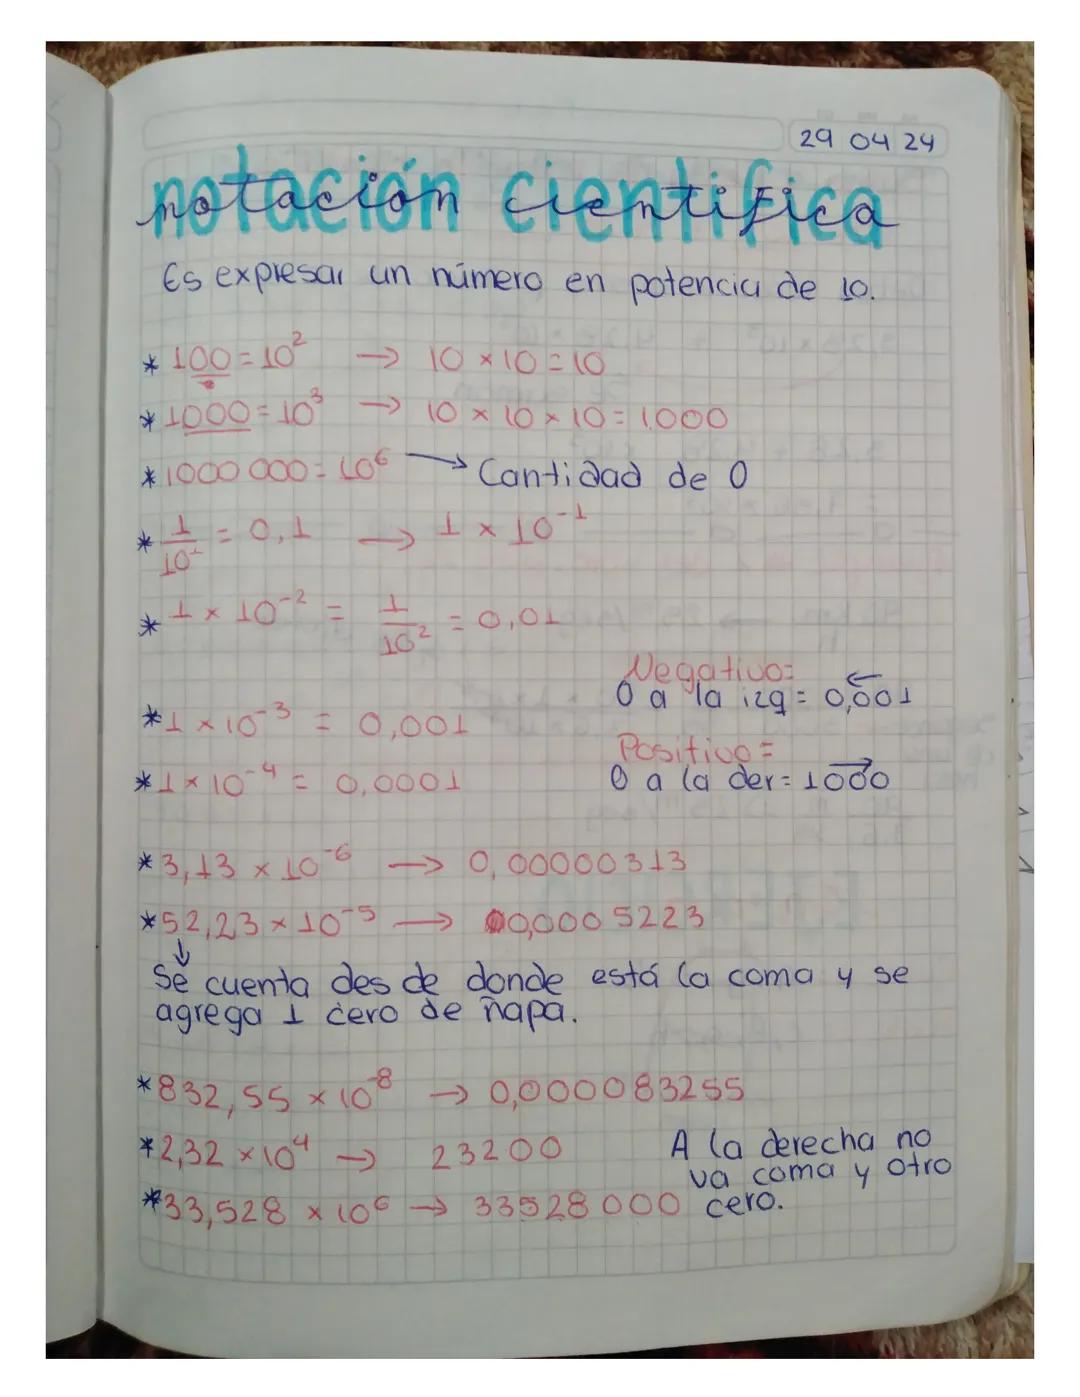 29 04 24
notación científica
Es expresar un número en potencia de 10.
* 100 = 10² → 10 × 10 = 10
* 1000 = 10³ → 10 × 10 × 10 = 1.000
* 1000 000 = 10⁶ → Cantidad de 0
* 1/10¹ = 0,1 → 1 × 10⁻¹
* 1 × 10⁻² = 1/10² = 0,01
Negativo =
0 a la izq = 0,001
* 1 × 10⁻³ = 0,001
Positivo =
0 a la der = 1000
* 1 × 10⁻⁴ = 0,0001
* 3,13 × 10⁻⁶ → 0,00000313
* 52,23 × 10⁻⁵ → 0,0005223
↓
Se cuenta desde donde está la coma y se
agrega 1 cero de ñapa.
* 832,55 × 10⁻⁸ → 0,0000083255
* 2,32 × 10⁴ → 23200
* 33,528 × 10⁶ → 33528000
A la derecha no
va coma y otro
cero.